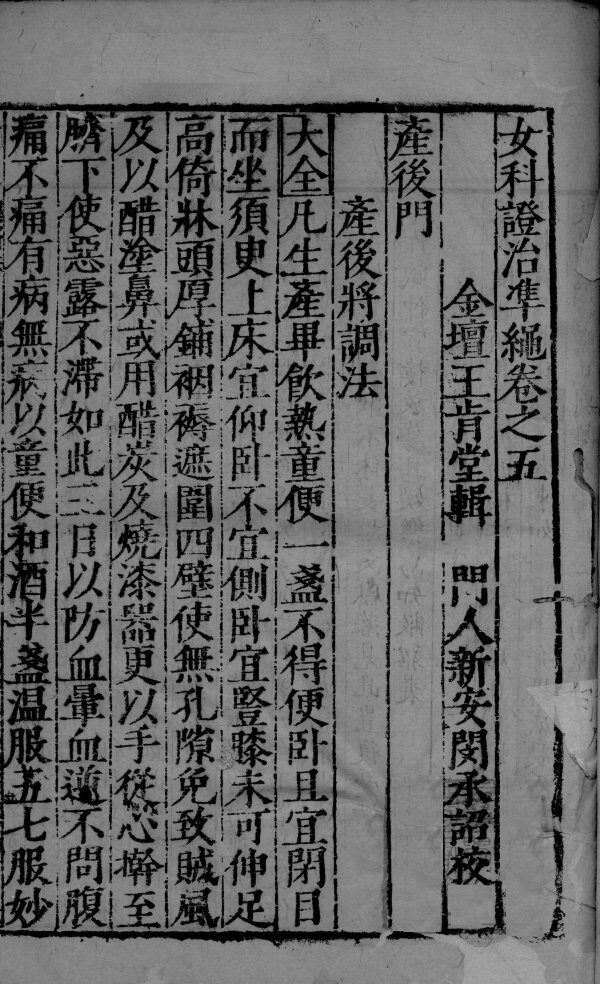 女科證治準繩卷之五
金壇王肯堂輯　門人新安閔承詔校
產後門
產後將調法
大全凡生產畢飲熱童便一盞不得便卧且宜閉目
而坐須臾上床宜仰卧不宜側卧宜豎膝未可伸足
高倚牀頭厚鋪裀褥遮圍四壁使無孔隙免致賊風
及以醋塗鼻或用醋炭及燒漆器更以手從心擀至
臍下使惡露不滯如此三日以防血暈血逆不問腹
痛不痛有病無病以童便和酒半盞温服五七服妙